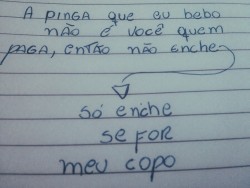 A PINGA que eu bebo
não é você quem
PAGA, ENTÃO NÃO enche
só enche
se FOR
meu copo